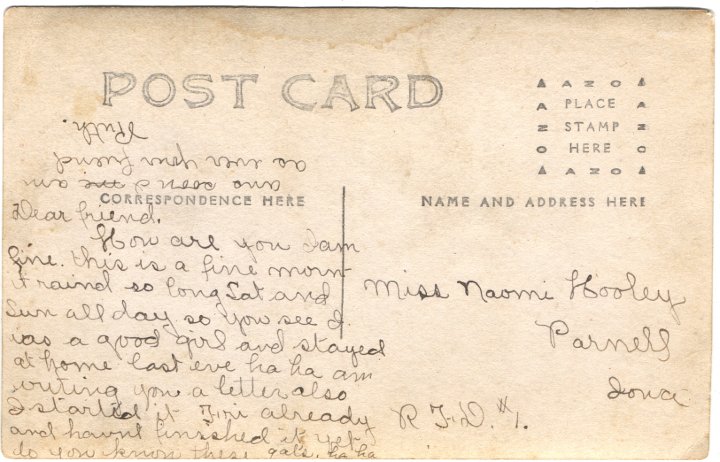 POST CARD
AZO
PLACE
STAMP
HERE
AZO
CORRESPONDENCE HERE
NAME AND ADDRESS HERE
Dear friend.
How are you I am
fine. this is a fine morn
it raind so long Sat and
Sun all day so you see I
was a good girl and stayed
at home last eve ha ha am
writing you a letter also
I started it Fri already
and havnt finished it yet
do you know these gals. ha ha
your friend
Ruth
Miss Naomi Hooley
Parnell
Iowa
R.F.D. #1.